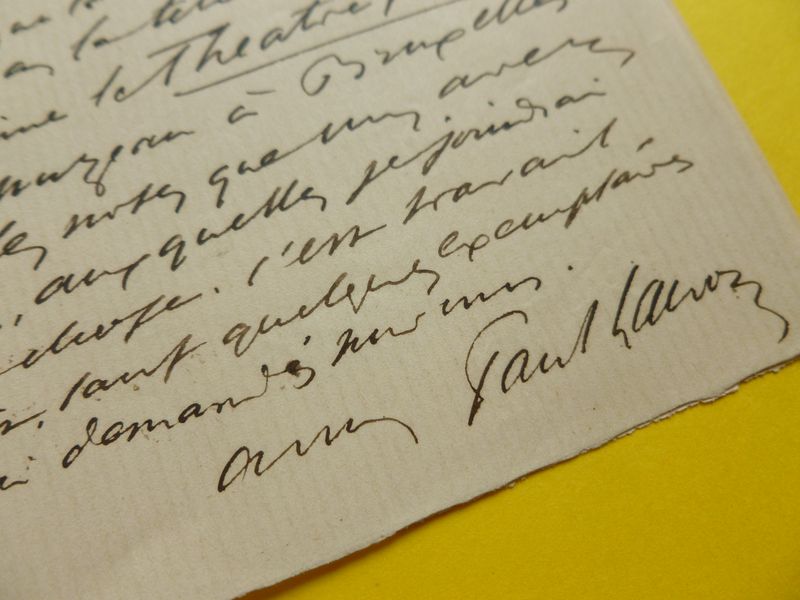 que la
la
le Theatre
à Bruxelles
les notes que vous avez
, auxquelles je joindrai
chose. C'est travail
, sauf quelques exemplaires
demandés pour nous.
ami Paul Lacroix